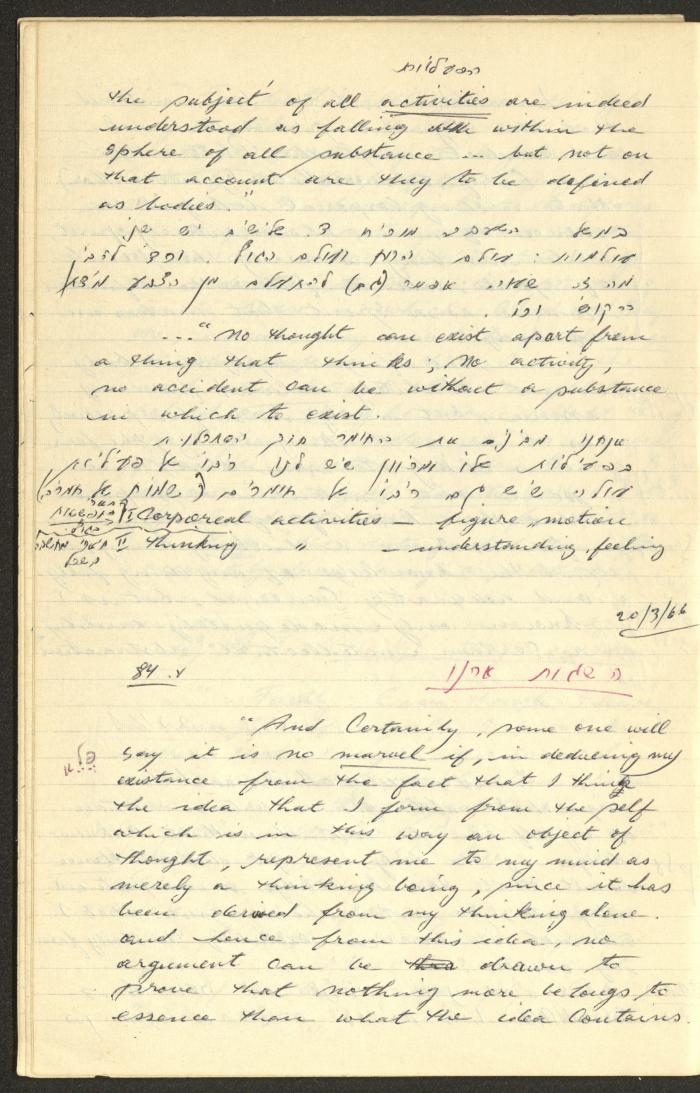 הפעילות
the subject of all activities are indeed
understood as falling within the
sphere of all substance ... but not on
that account are they to be defined
as bodies."
יש שני
עולמות: עולם הרוח ועולם הגוף.
מה אפשר (גם) מן
..." No thought can exist apart from
a thing that thinks; no activity,
no accident can be without a substance
in which to exist.
אנחנו מבינים את החומר מתוך הסתכלות
בפעילות אלו ומכיון שיש לנו ריבוי של פעילות
עולה שיש גם ריבוי של חומרים
I Corporeal activities — figure, motion
II Thinking " — understanding, feeling
20/3/66
84. השגות ארנו
"And Certainly, some one will
פלא say it is no marvel if, in deducing my
existance from the fact that I think
the idea that I form from the self
which is in this way an object of
thought, represent me to my mind as
merely a thinking being, since it has
been derived from my thinking alone.
and hence from this idea, no
argument can be drawn to
prove that nothing more belongs to
essence than what the idea contains.